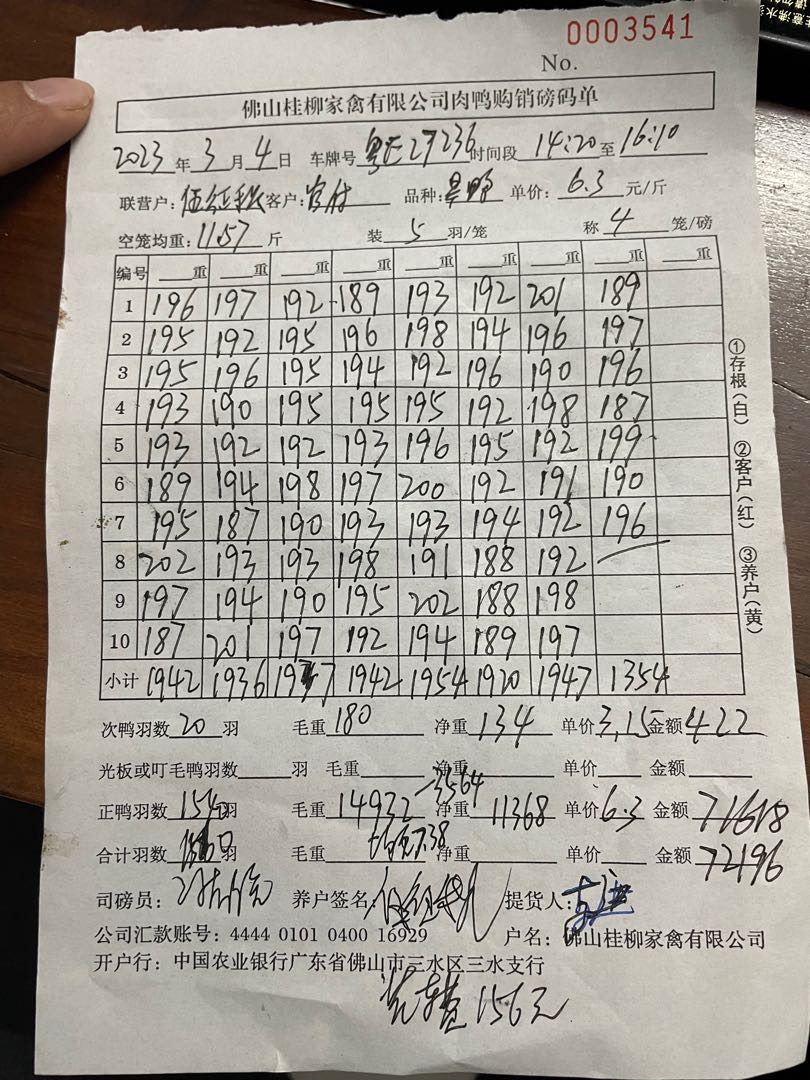 0003541
No.
佛山桂柳家禽有限公司肉鸭购销磅码单
2023 年 3 月 4 日 车牌号 粤E27236 时间段 14:20 至 16:10
联营户: 客户: 品种: 单价: 6.3 元/斤
空笼均重: 11.57 斤 装 5 羽/笼 称 4 笼/磅
编号 重 重 重 重 重 重 重 重 重
1 196 197 192 189 193 192 201 189
2 195 192 195 196 198 194 196 197
3 195 196 195 194 192 196 190 196
4 193 190 195 195 195 192 198 187
5 193 192 192 193 196 195 192 199
6 189 194 198 197 200 192 191 190
7 195 187 190 193 193 194 192 196
8 202 193 193 198 191 188 192
9 197 194 190 195 202 188 198
10 187 201 197 192 194 189 197
小计 1942 1936 1937 1942 1954 1920 1947 1354
①存根(白) ②客户(红) ③养户(黄)
次鸭羽数 20 羽 毛重 180 净重 134 单价 3.15 金额 422
光板或叮毛鸭羽数 羽 毛重 净重 单价 金额
正鸭羽数 1540 羽 毛重 14932 -3564 净重 11368 单价 6.3 金额 71618
合计羽数 1560 羽 毛重 7.38 净重 单价 金额 72196
司磅员: 养户签名: 提货人:
公司汇款账号: 4444 0101 0400 16929 户名: 佛山桂柳家禽有限公司
开户行: 中国农业银行广东省佛山市三水区三水支行
156元